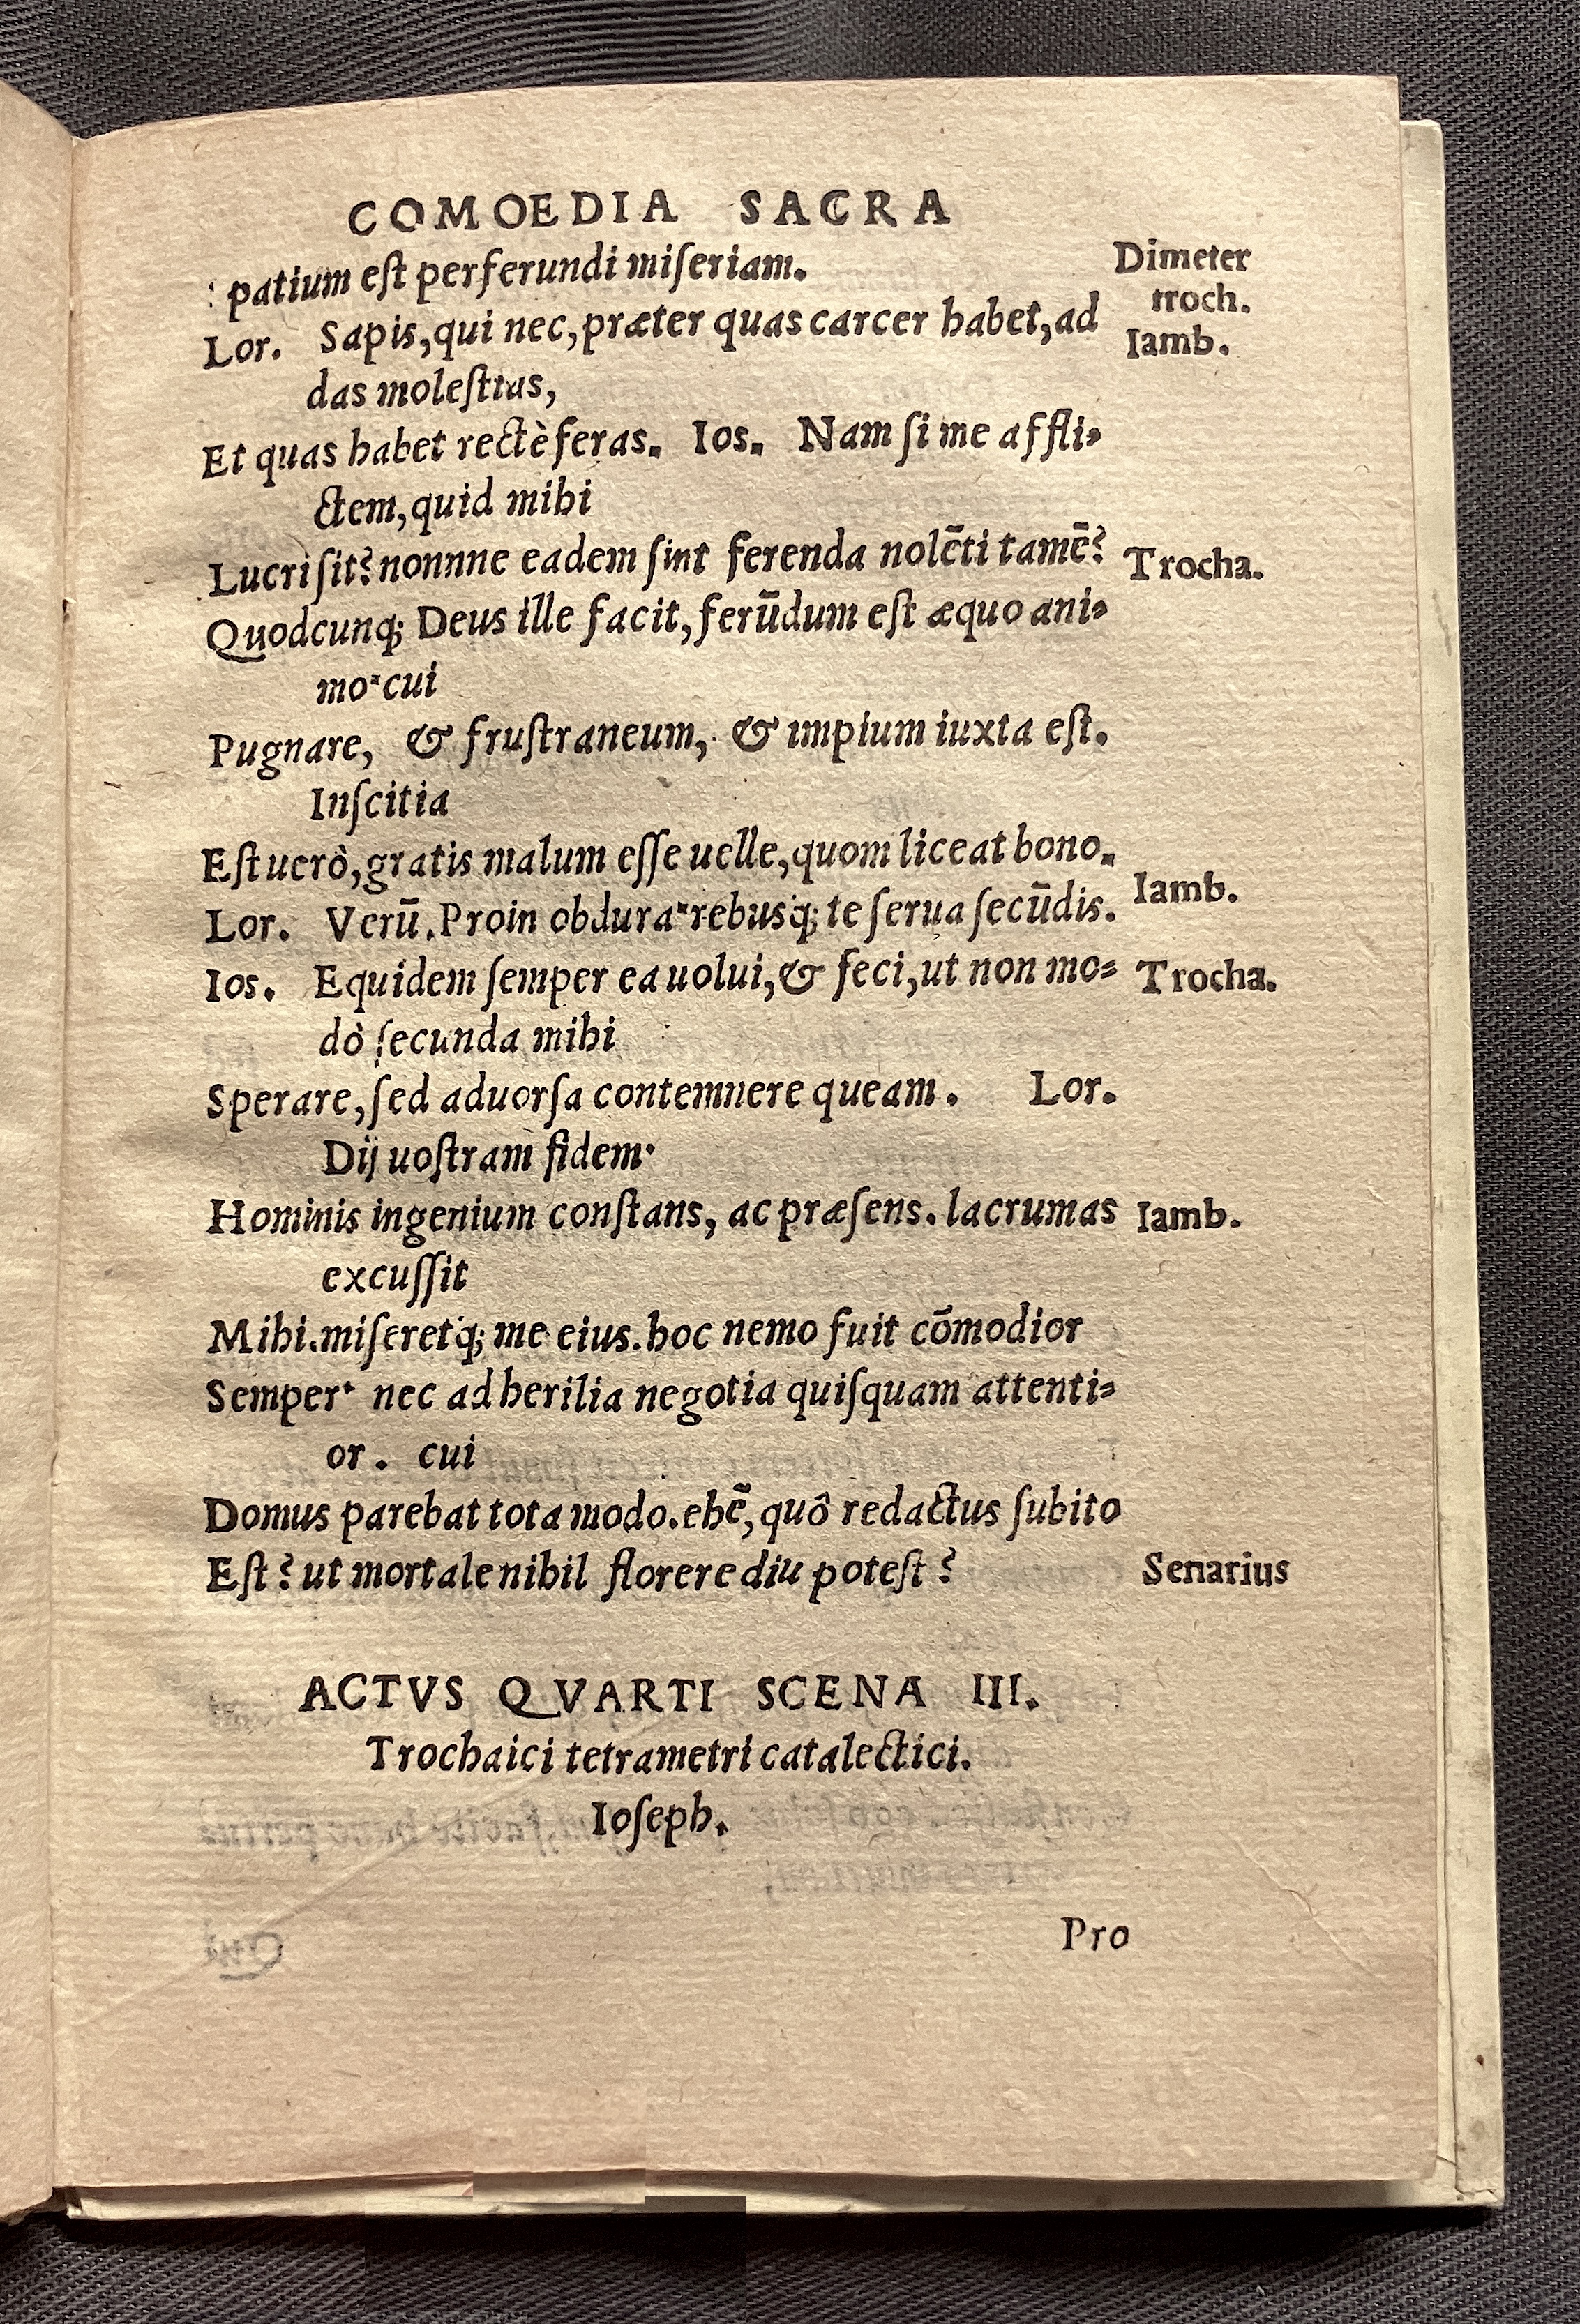 COMOEDIA SACRA
:patium est perferundi miseriam. Dimeter
troch.
Lor. Sapis, qui nec, præter quas carcer habet, ad Iamb.
das molestias,
Et quas habet rectè feras. Ios. Nam si me affli=
ctem, quid mihi
Lucri sit? nonnne eadem sint ferenda nolēti tamē? Trocha.
Quodcunq; Deus ille facit, ferūdum est æquo ani=
mo: cui
Pugnare, & frustraneum, & impium iuxta est.
Inscitia
Est uerò, gratis malum esse uelle, quom liceat bono.
Lor. Verū. Proin obdura: rebusq; te serua secūdis. Iamb.
Ios. Equidem semper ea uolui, & feci, ut non mo= Trocha.
dò secunda mihi
Sperare, sed aduorsa contemnere queam. Lor.
Dij uostram fidem:
Hominis ingenium constans, ac præsens. lacrumas Iamb.
excussit
Mihi. miseretq; me eius. hoc nemo fuit cōmodior
Semper: nec ad herilia negotia quisquam attenti=
or. cui
Domus parebat tota modo. ehē, quô redactus subito
Est? ut mortale nihil florere diu potest? Senarius
ACTVS QVARTI SCENA III.
Trochaici tetrametri catalectici.
Ioseph.
Pro